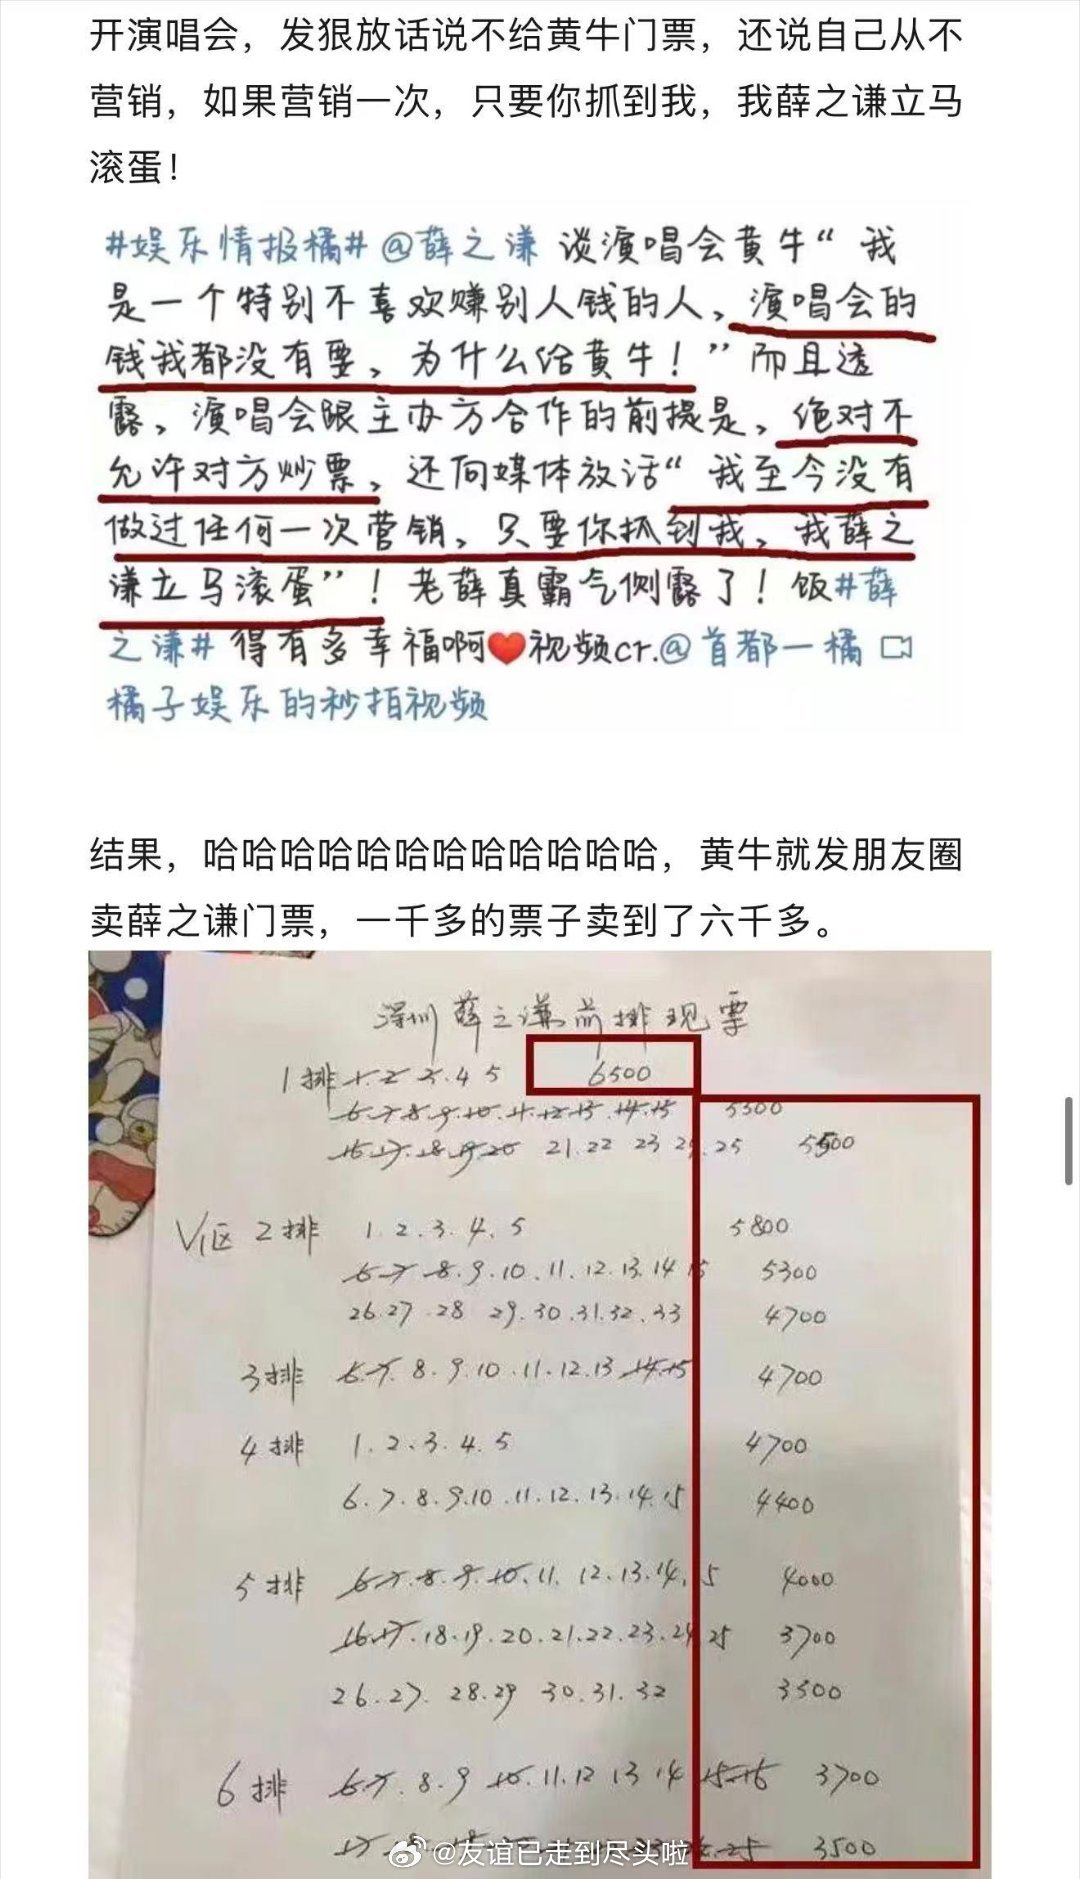 开演唱会，发狠放话说不给黄牛门票，还说自己从不
营销，如果营销一次，只要你抓到我，我薛之谦立马
滚蛋！
#娱乐情报橘#@薛之谦 谈演唱会黄牛“我
是一个特别不喜欢赚别人钱的人，演唱会的
钱我都没有要，为什么给黄牛！”而且透
露，演唱会跟主办方合作的前提是，绝对不
允许对方炒票，还向媒体放话“我至今没有
做过任何一次营销，只要你抓到我，我薛之
谦立马滚蛋”！老薛真霸气侧露了！饭#薛
之谦#得有多幸福啊❤视频cr.@首都一橘
橘子娱乐的秒拍视频
结果，哈哈哈哈哈哈哈哈哈哈哈哈，黄牛就发朋友圈
卖薛之谦门票，一千多的票子卖到了六千多。
深圳薛之谦前排现票
1排 1.2 3.4 5 6500
6.7.8.9.10.11.12.13.14.15 5300
16.17.18.19.20 21.22 23 24.25 5500
V1区 2排 1.2.3.4.5 5800
6.7.8.9.10.11.12.13.14 15 5300
26.27.28 29.30.31.32.33 4700
3排 6.7.8.9.10.11.12.13.14.15 4700
4排 1.2.3.4.5 4700
6.7.8.9.10.11.12.13.14.15 4400
5排 6.7.8.9.10.11.12.13.14.15 4000
16.17.18.19.20.21.22.23.24 25 3700
26.27.28.29 30.31.32 3500
6排 6.7.8.9 10.11.12 13 14 15.16 3700
17 25 3500
@友谊已走到尽头啦